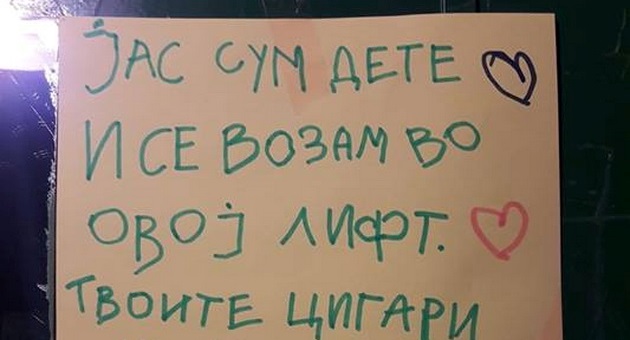 ЈАС СУМ ДЕТЕ
И СЕ ВОЗАМ ВО
ОВОЈ ЛИФТ.
ТВОИТЕ ЦИГАРИ